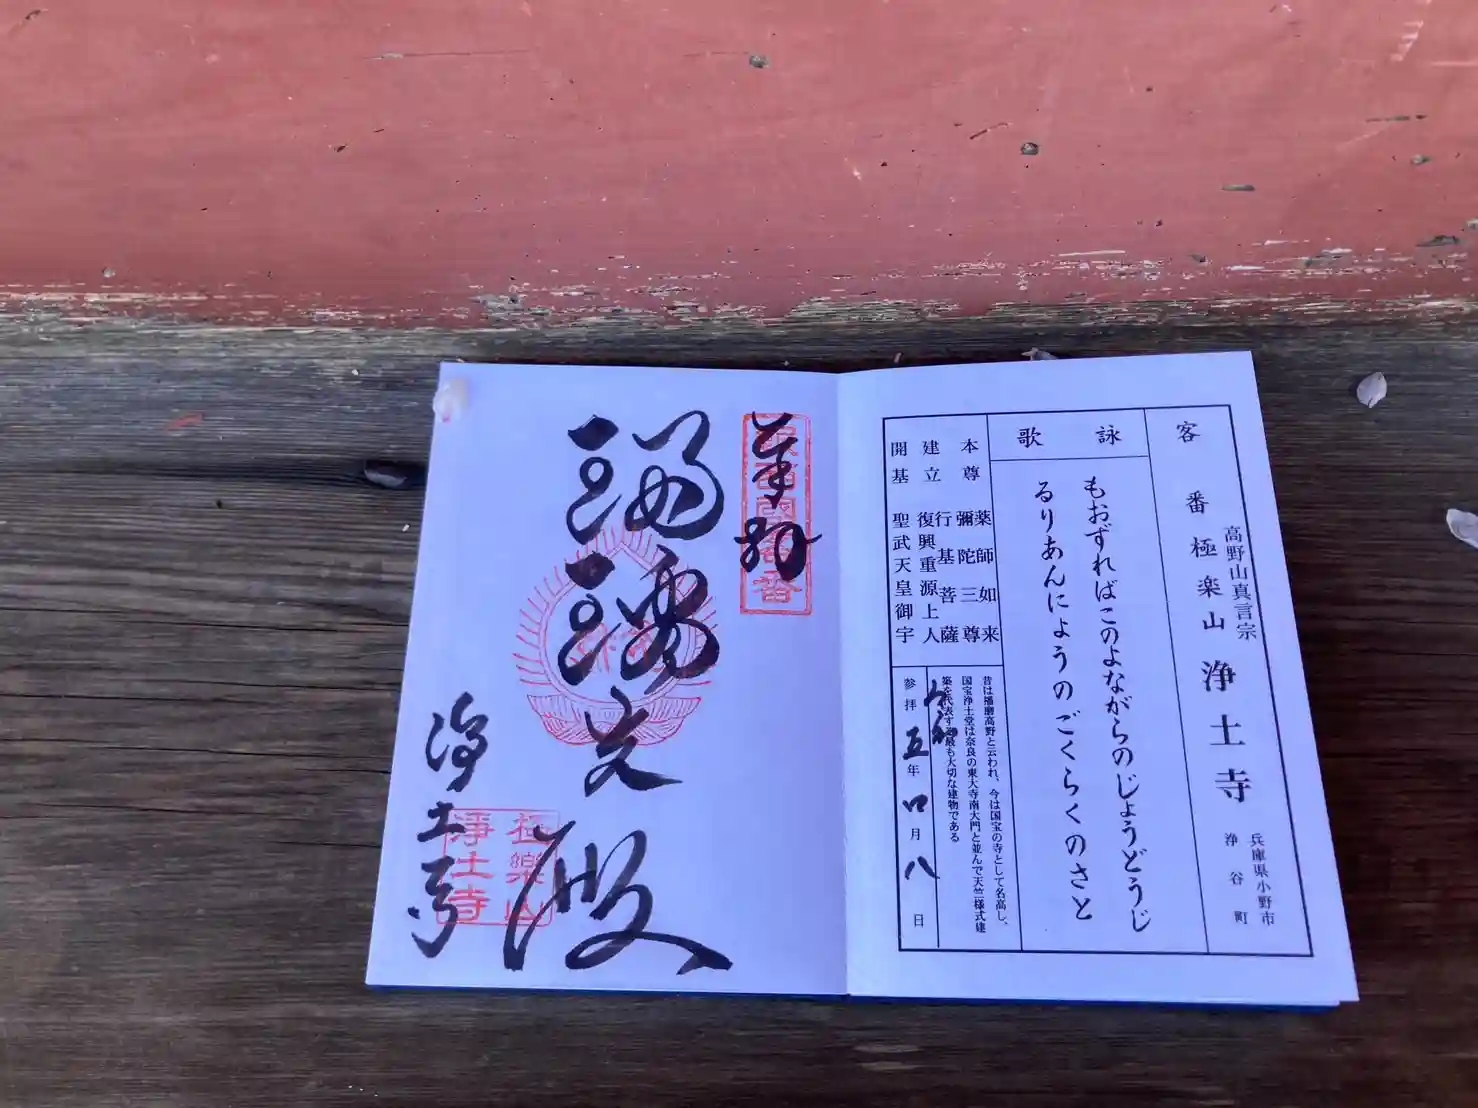 客番極楽山 浄土寺
高野山真言宗
兵庫県小野市
浄谷町
詠歌
もおずればこのよながらのじょうどうじ
るりあんにようのごくらくのさと
本尊 薬師如来
彌陀三尊
建立 行基菩薩
復興重源上人
開基 聖武天皇御宇
昔は播磨高野と云われ、今は国宝の寺として名高し、
国宝浄土堂は奈良の東大寺南大門と並んで天竺様式建
築を代表する最も大切な建物である
参拝 五年 月八日
奉拝
瑠璃光殿
浄土寺
極樂山
浄土寺